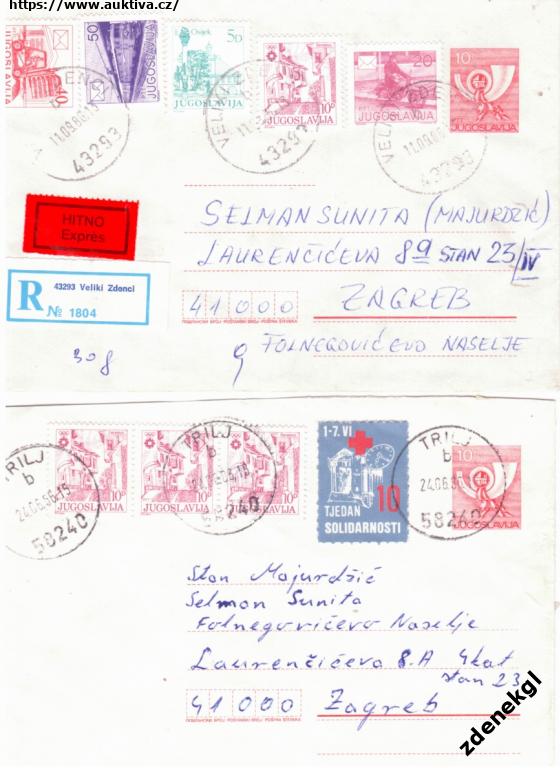 https://www.auktiva.cz/
10
JUGOSLAVIJA
50
JUGOSLAVIJA
Osijek
50
JUGOSLAVIJA
JUGOSLAVIJA
20
JUGOSLAVIJA
10
JUGOSLAVIJA
11.09.86
43293
43293
11.09.86
43293
HITNO
Expres
R
43293 Veliki Zdenci
№ 1804
SELMAN SUNITA (MAJURDŽIĆ)
LAURENČIĆEVA 8a STAN 23/IV
41000
ZAGREB
FOLNEGOVIĆEVO NASELJE
308
TRILJ
b
24.06.86.15
58240
10
JUGOSLAVIJA
10
JUGOSLAVIJA
10
JUGOSLAVIJA
TRILJ
b
58240
1-7. VI
10
TJEDAN
SOLIDARNOSTI
TRILJ
b
24.06.86
58240
10
JUGOSLAVIJA
Stan Majurdžić
Selman Sunita
Folnegovićevo Naselje
Laurenčićeva 8.A 4kat
stan 23
41000
Zagreb
zdenekgl